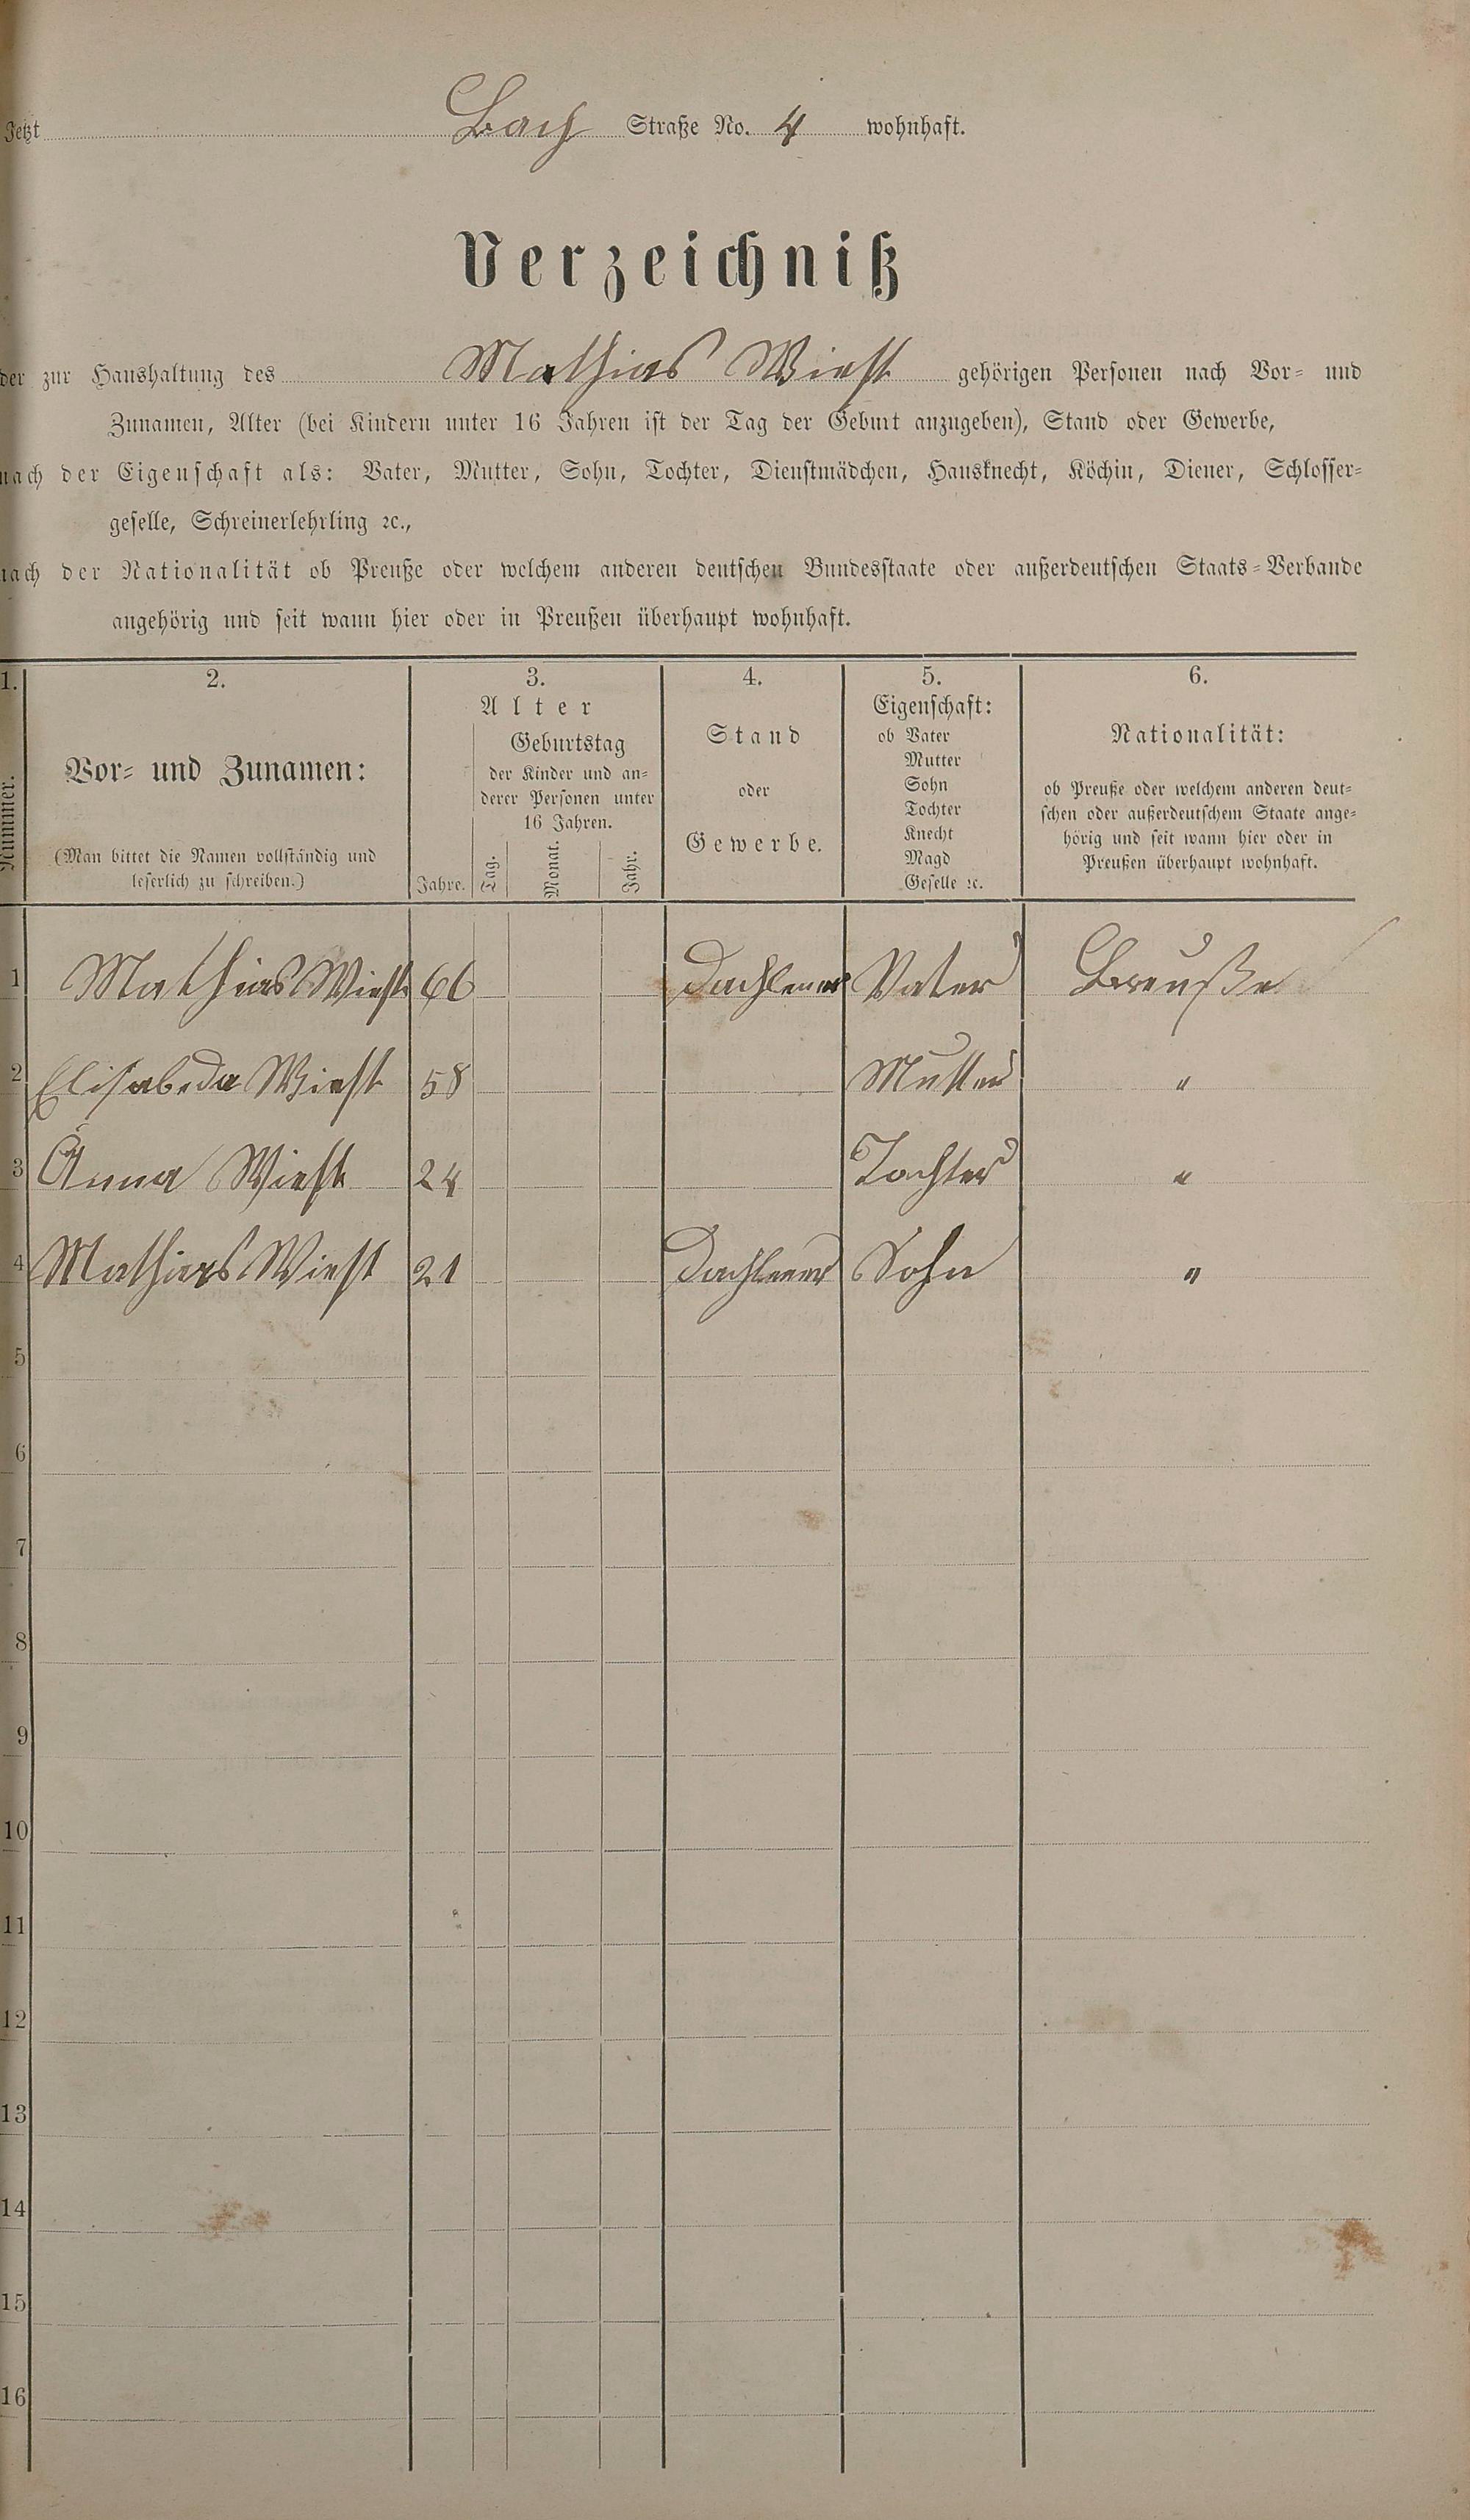 Jetzt Bach Straße No. 4 wohnhaft.
Verzeichniß
der zur Haushaltung des Mathias Wiest gehörigen Personen nach Vor- und
Zunamen, Alter (bei Kindern unter 16 Jahren ist der Tag der Geburt anzugeben), Stand oder Gewerbe,
nach der Eigenschaft als: Vater, Mutter, Sohn, Tochter, Dienstmädchen, Hausknecht, Köchin, Diener, Schlosser-
geselle, Schreinerlehrling ꝛc.,
nach der Nationalität ob Preuße oder welchem anderen deutschen Bundesstaate oder außerdeutschen Staats-Verbande
angehörig und seit wann hier oder in Preußen überhaupt wohnhaft.
1. 2. 3. 4. 5. 6.
Nummer.
Vor- und Zunamen:
(Man bittet die Namen vollständig und
leserlich zu schreiben.)
Alter
Jahre.
Geburtstag
der Kinder und an-
derer Personen unter
16 Jahren.
Tag. Monat. Jahr.
Stand
oder
Gewerbe.
Eigenschaft:
ob Vater
Mutter
Sohn
Tochter
Knecht
Magd
Geselle ꝛc.
Nationalität:
ob Preuße oder welchem anderen deut-
schen oder außerdeutschem Staate ange-
hörig und seit wann hier oder in
Preußen überhaupt wohnhaft.
1 Mathias Wiest 66 Vater Breuße
2 Elisabeda Wiest 58 Mutter "
3 Anna Wiest 24 Tochter "
4 Mathias Wiest 21 Sohn "
5
6
7
8
9
10
11
12
13
14
15
16